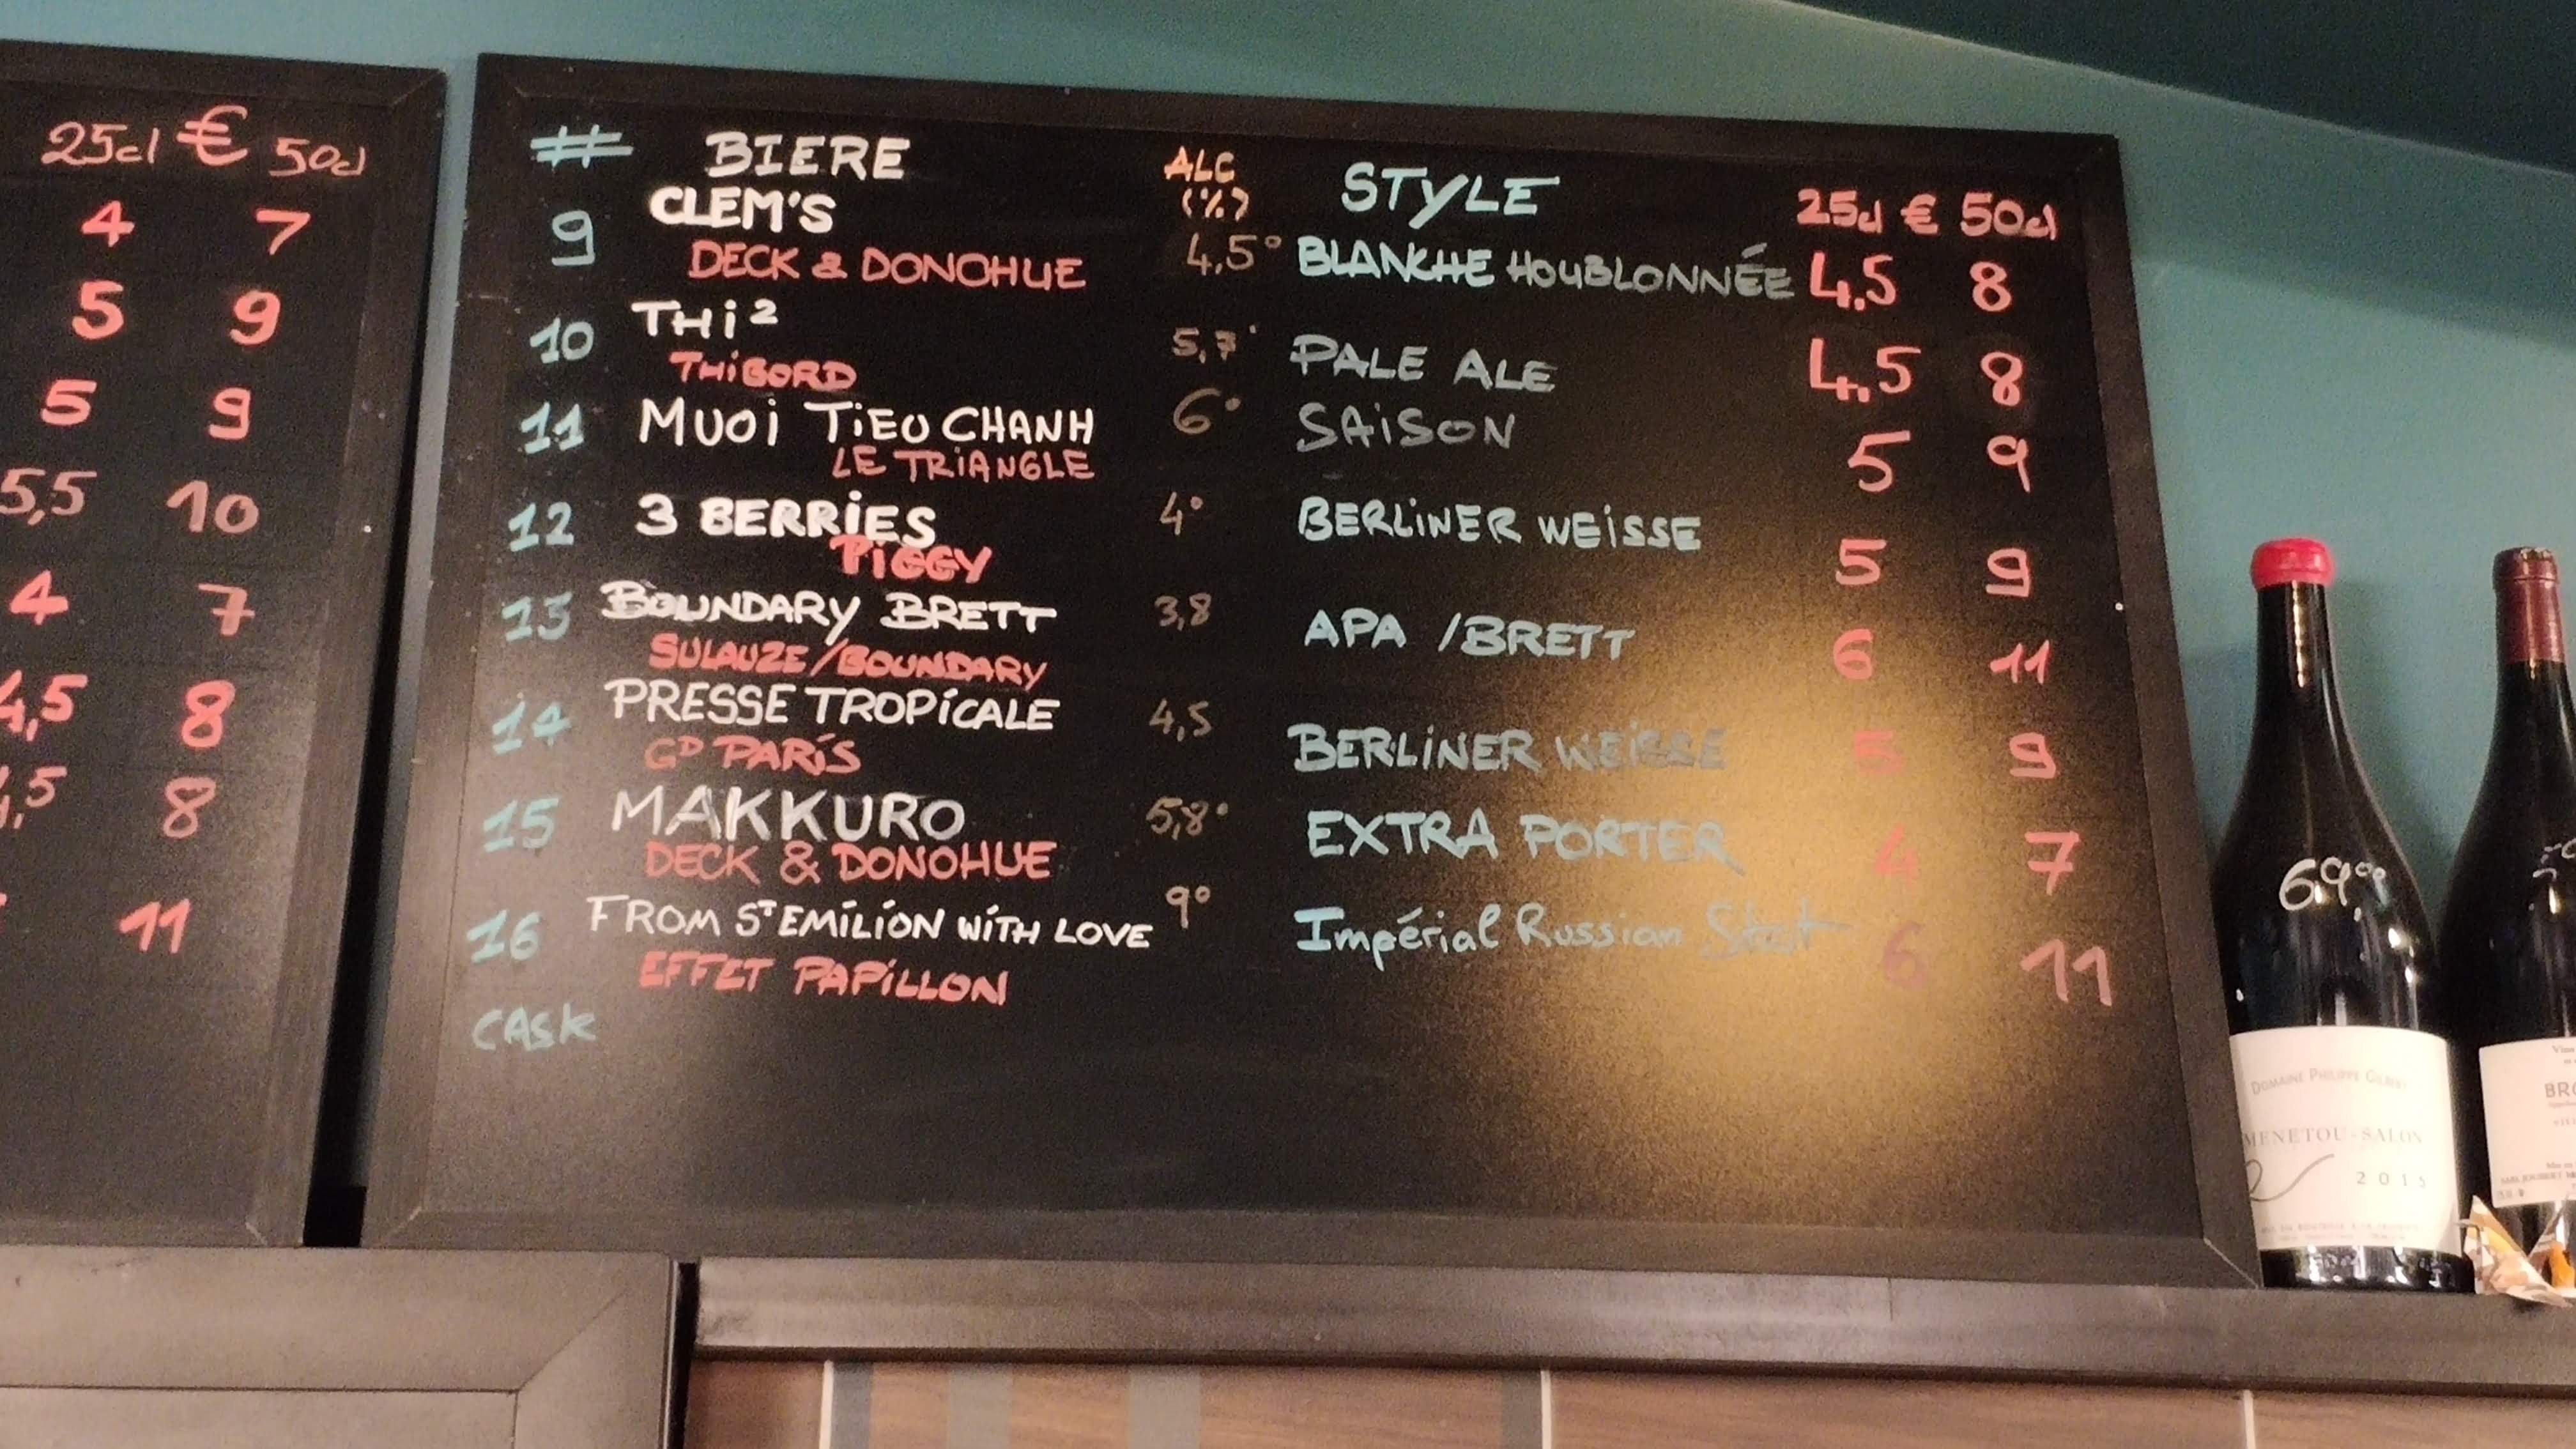 25cl € 50cl
4 7
5 9
5 9
5,5 10
4 7
4,5 8
4,5 8
11
# BIERE ALC (%) STYLE 25cl € 50cl
9 CLEM'S 4,5° BLANCHE HOUBLONNÉE 4,5 8
DECK & DONOHUE
10 THI² 5,7° PALE ALE 4,5 8
THIBORD
11 MUOI TIEU CHANH 6° SAISON 5 9
LE TRIANGLE
12 3 BERRIES 4° BERLINER WEISSE 5 9
PIGGY
13 BOUNDARY BRETT 3,8 APA /BRETT 6 11
SULAUZE/BOUNDARY
14 PRESSE TROPICALE 4,5 BERLINER WEISSE 5 9
GD PARIS
15 MAKKURO 5,8° EXTRA PORTER 4 7
DECK & DONOHUE
16 FROM ST EMILION WITH LOVE 9° Impérial Russian Stout 6 11
EFFET PAPILLON
CASK
69,00
DOMAINE PHILIPPE GILBERT
MENETOU-SALON
2015